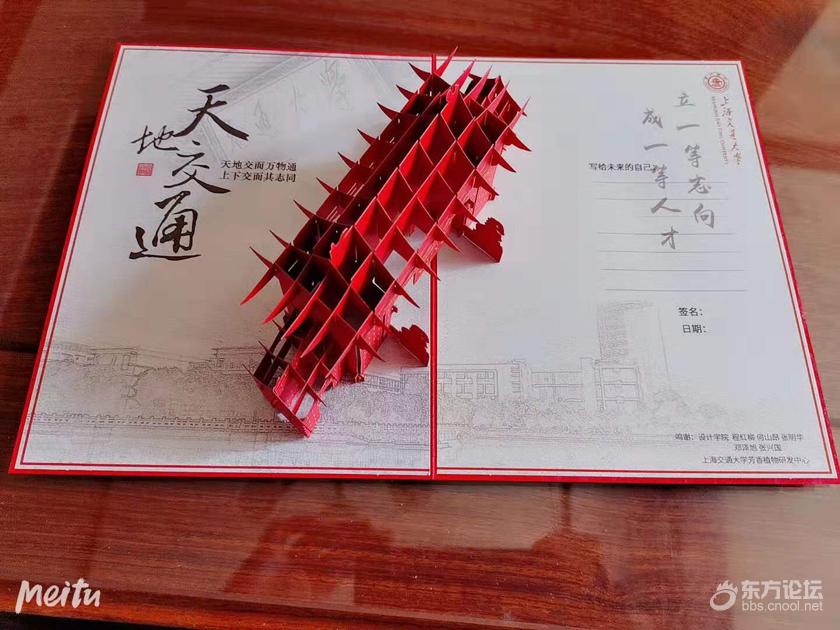 天地交通
天地交而万物通
上下交而其志同
上海交通大学
立一等志向
成一等人才
写给未来的自己：
签名：
日期：
鸣谢：设计学院 程红梅 何山昂 张明华
邓泽旭 张兴国
上海交通大学芳香植物研发中心
meitu
东方论坛
bbs.cnool.net